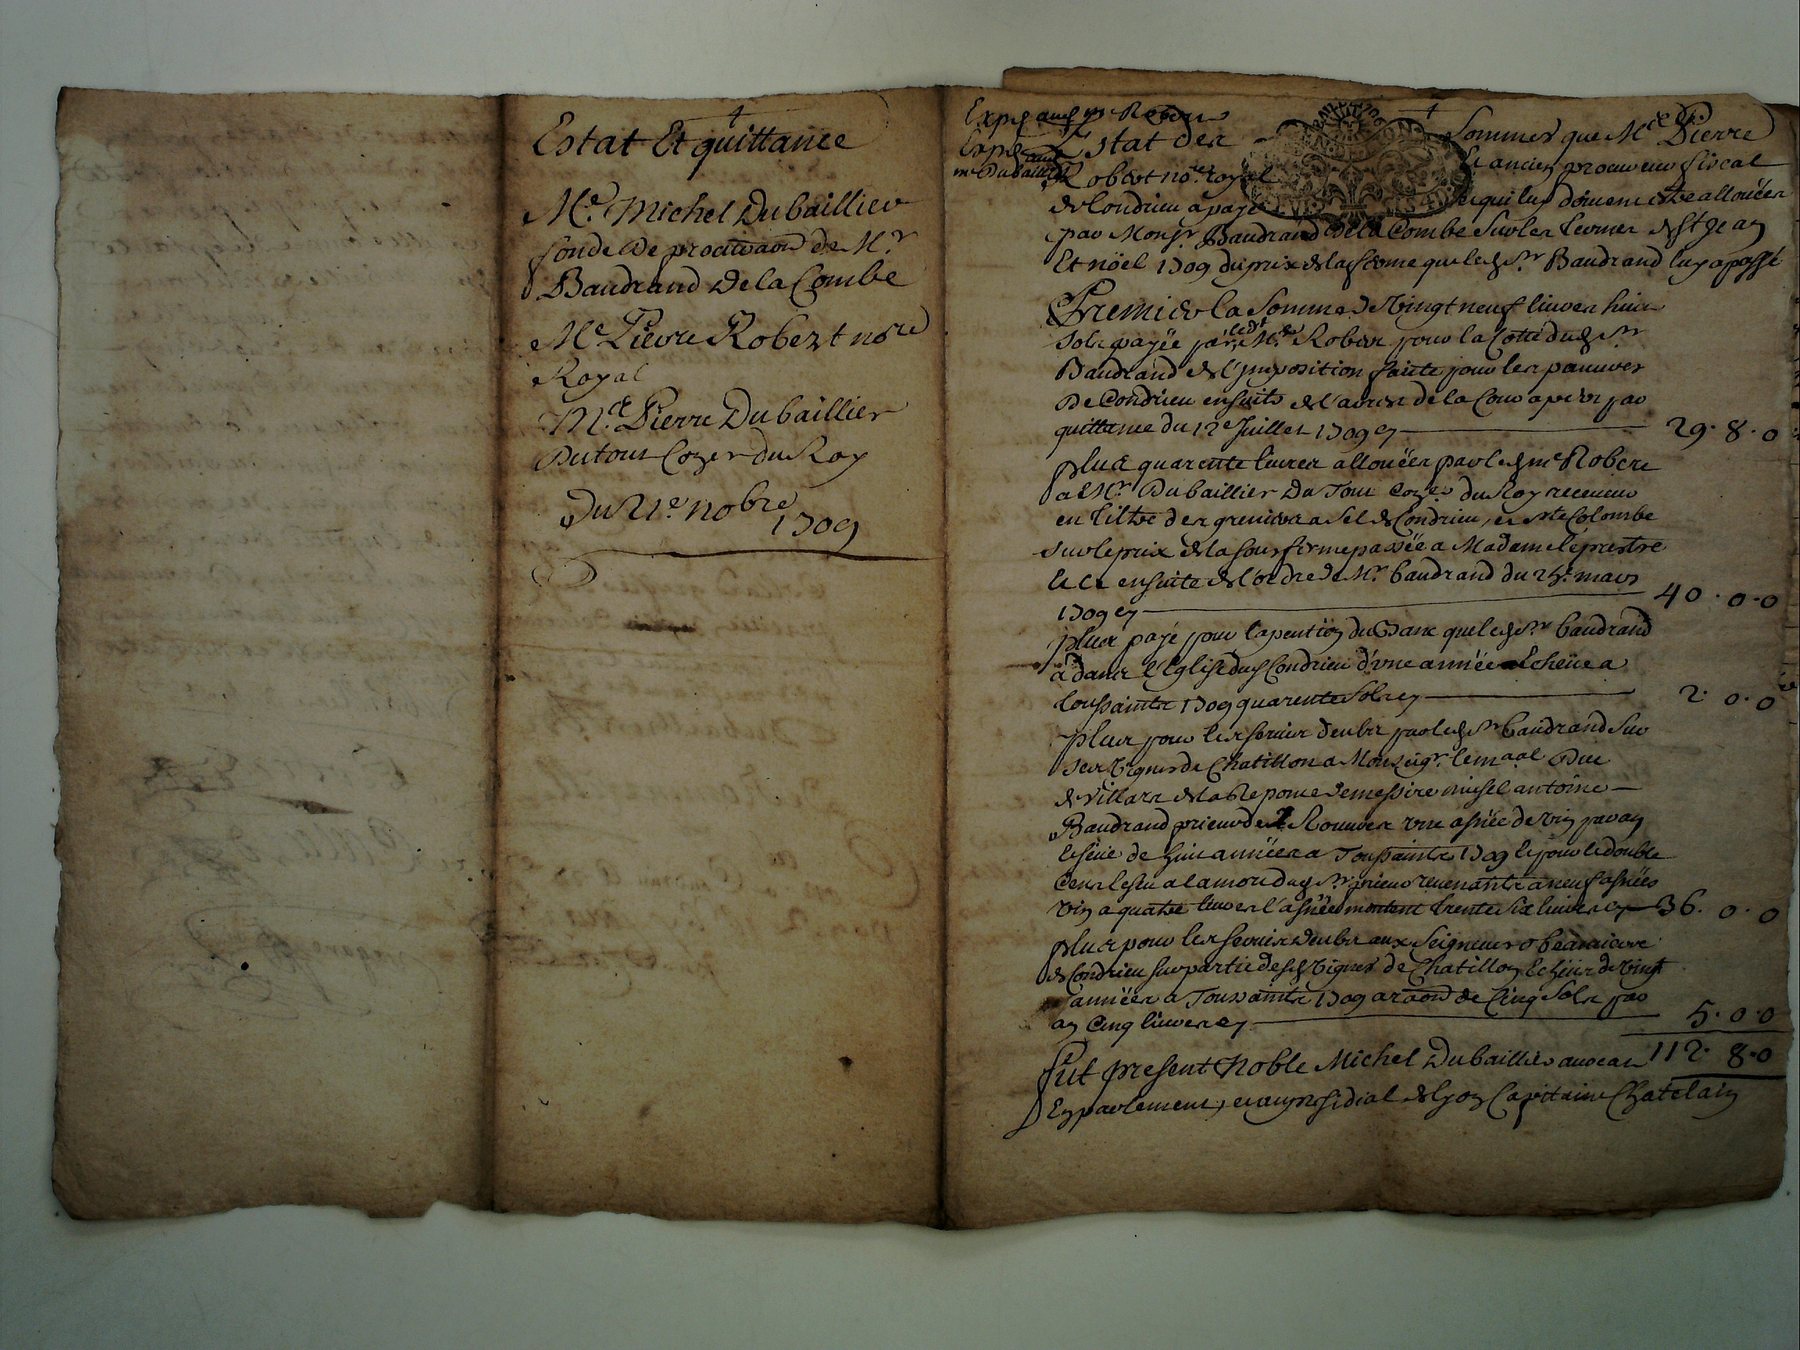 Estat Et quittance
Me. Michel Dubaillier
fondé De procuraon de Mr
Baudrand de la Combe
Me Pierre Robert nore
Royal
Me. Pierre Dubaillier
Dutour Coner du Roy
Du 21e nobre
1709
Expé aud me Robert
Expé aud
me Dubaillier
Estat des sommes que Me Pierre
Robert nore royal et ancien procureur fiscal
de Condrieu a payé et qui luy doivent estre allouées
par Monsr Baudrand de la Combe sur les termes de st Jean
Et nöel 1709 du prix de la ferme que led sr Baudrand luy a passé
Premier la somme de Vingt neuf livres huit
sols payée par led Me Robert pour la Cotte dud sr
Baudrand de l'jmposition faitte pour les pauvres
De Condrieu ensuite de l'arrest de la Cour a pr par
quittance du 12e Juillet 1709 cy 29. 8. 0
plus quarente livres allouées par led me Robert
a Mr Dubaillier Du Tour Coner du Roy receveur
en tiltre des greniers a sel de Condrieu, et ste Colombe
sur le prix de la sousferme passée a Madame leprestre
le ensuite de l'ordre de Mr baudrand du 25e mars
1709 cy 40. 0. 0
plus payé pour la pention du Banc que led sr baudrand
a dans l'Eglise dud Condrieu d'une année Echeüe a
toussaints 1709 quarente sols cy 2. 0. 0
plus pour les servis deubs par led sr baudrand sur
ses Vignes de Chatillon a Monseigr le maal Duc
de Villars de la Reponse de messire michel antöine
Baudrand prieur de Rouvres une asnée de Vin par an
Echeüe de huit années a Toussaints 1709 Et pour le double
Cens Escheu a la mort dud sr prieur revenants a neuf asnées
Vin a quatre livres l'asnée montent trente six livres cy 36. 0. 0
plus pour les servis deubs aux Seigneurs obeanciers
de Condrieu sur partie desd Vignes de Chatillon Echeus de Vingt
années a Toussaints 1709 a raon de Cinq sols par
an Cinq livres cy 5. 0. 0
112. 8. 0
Fut present Noble Michel Dubaillier avocat
En parlement, et au presidial de Lyon Capitaine Chatelain